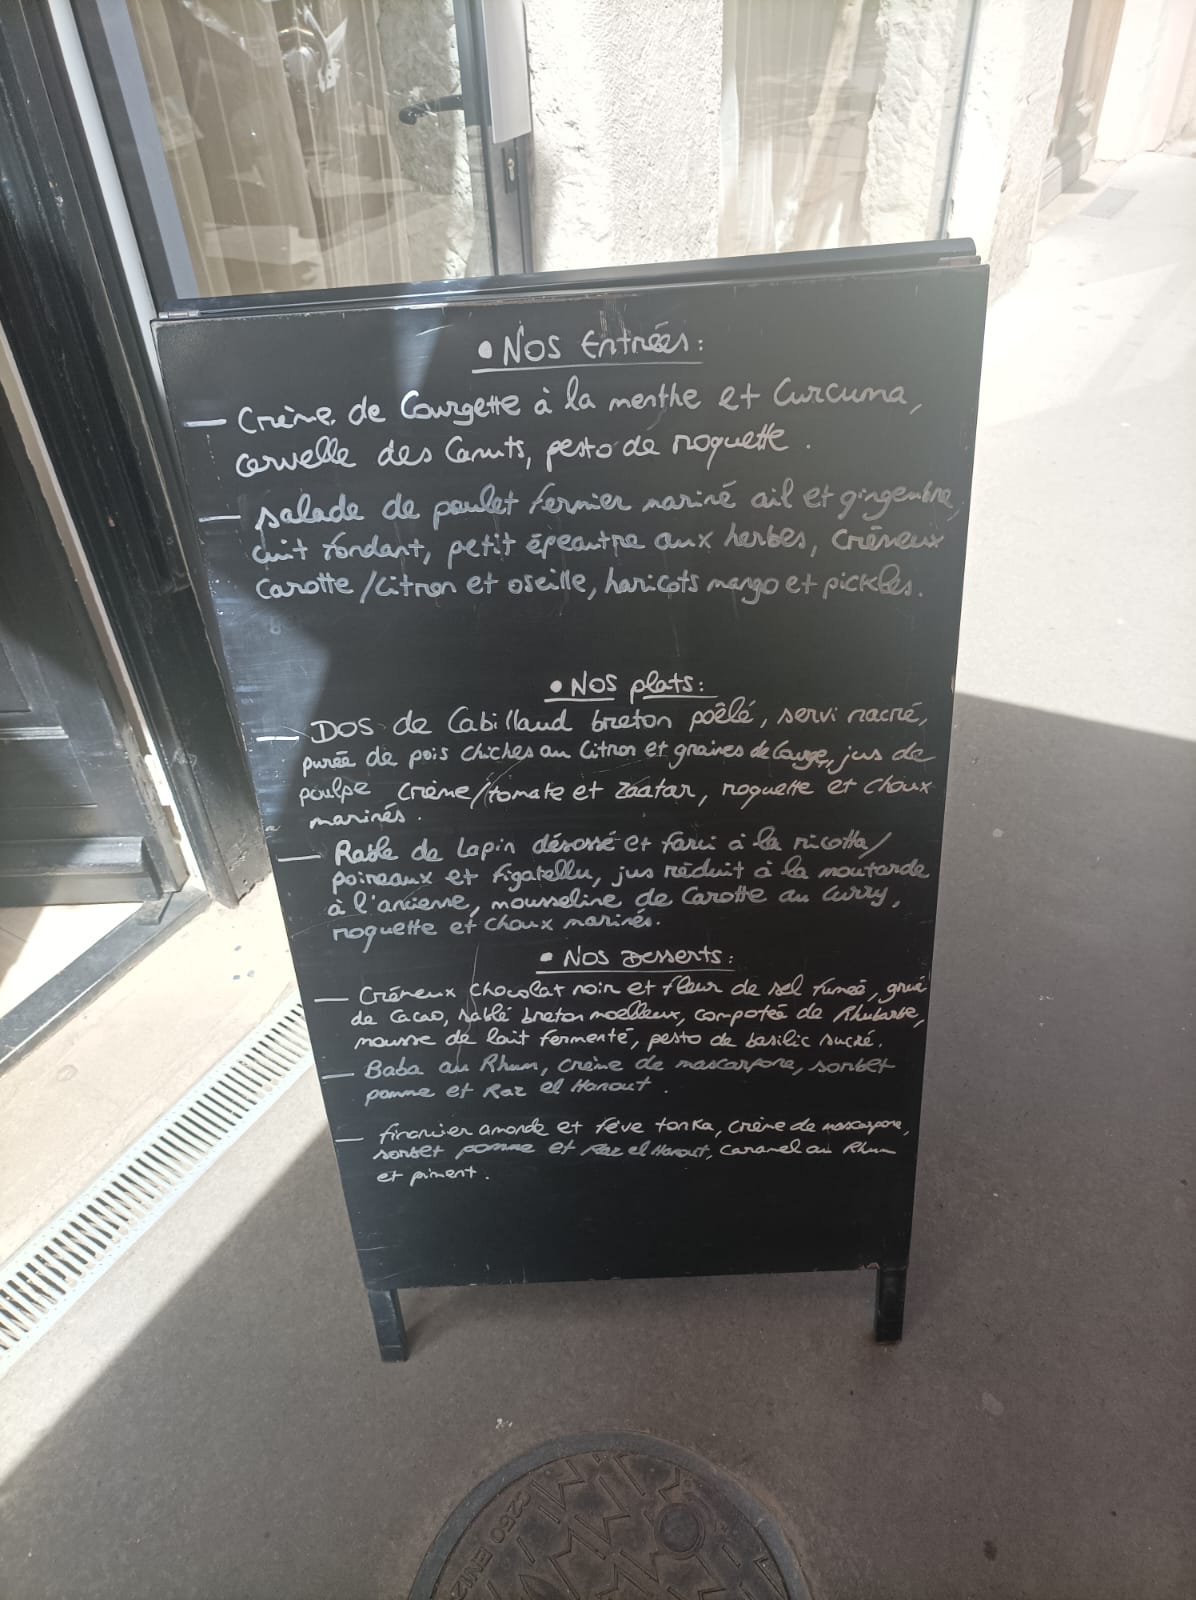 • Nos Entrées :
— Crème de Courgette à la menthe et Curcuma,
cervelle des Canuts, pesto de roquette .
— salade de poulet fermier mariné ail et gingembre,
cuit fondant, petit épeautre aux herbes, crémeux
carotte/citron et oseille, haricots mango et pickles.
• Nos plats :
— Dos de Cabillaud breton poêlé, servi nacré,
purée de pois chiches au Citron et graines de Courge, jus de
poulpe crème/tomate et Zaatar, roquette et choux
marinés .
— Rable de Lapin désossé et farci à la ricotta/
poireaux et figatellu, jus réduit à la moutarde
à l'ancienne, mousseline de Carotte au Curry,
roquette et choux marinés.
• Nos Desserts :
— Crémeux chocolat noir et fleur de sel fumée, grué
de Cacao, sablé breton moelleux, compotée de Rhubarbe,
mousse de lait fermenté, pesto de basilic sucré.
— Baba au Rhum, crème de mascarpone, sorbet
pomme et Raz el Hanout .
— financier amande et fève tonka, crème de mascarpone,
sorbet pomme et Raz el Hanout, caramel au Rhum
et piment .